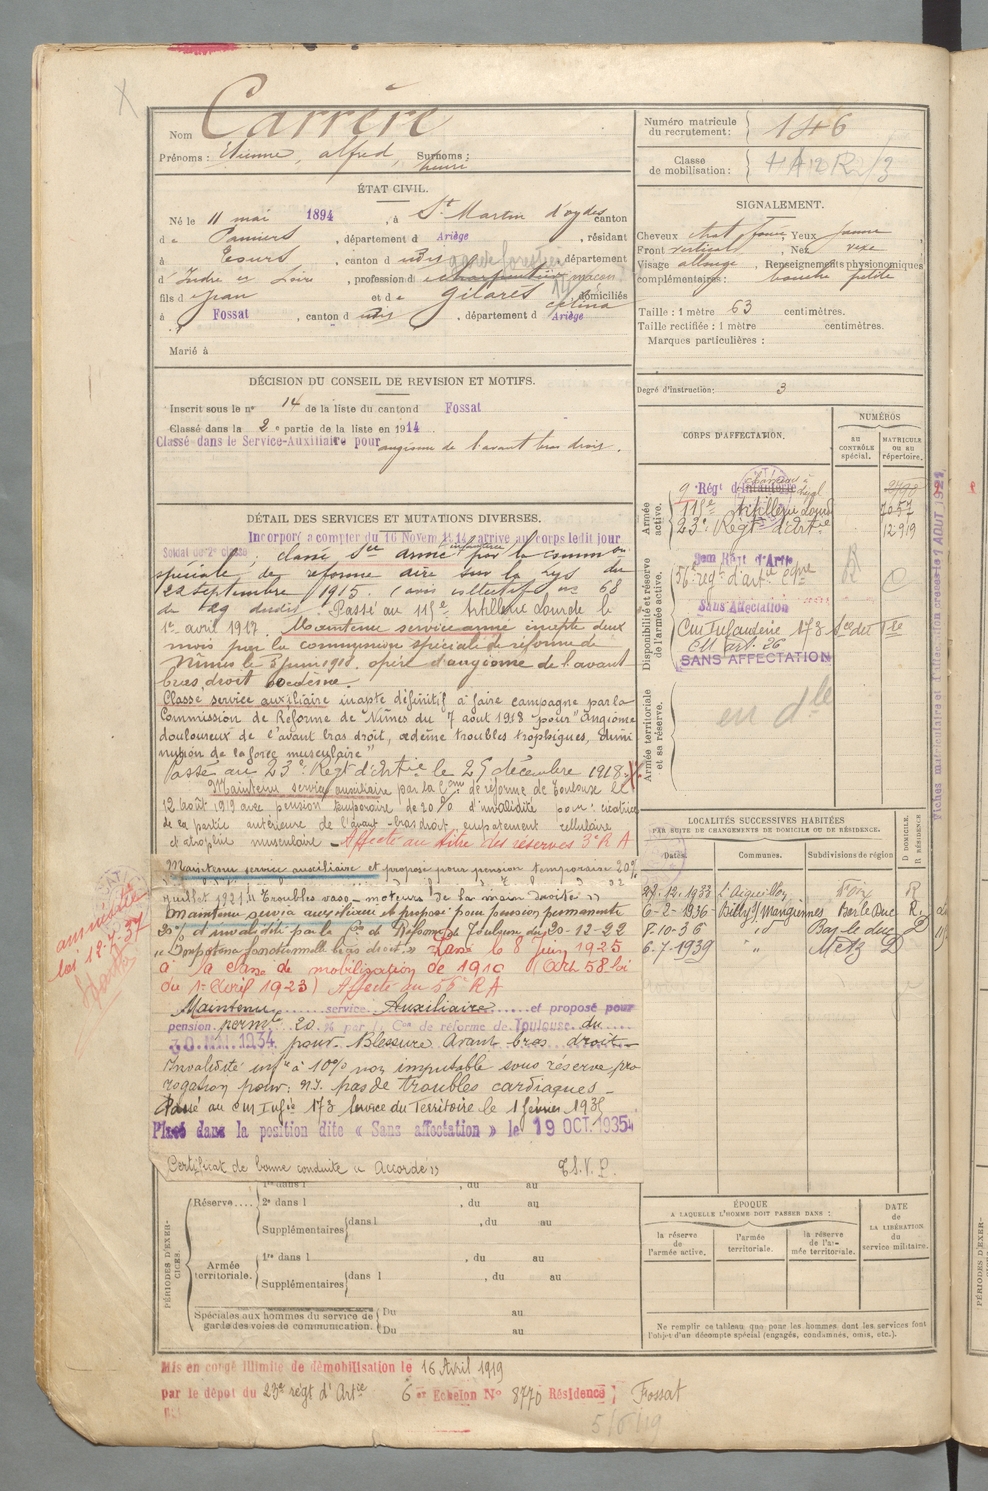 Nom Carrère
Prénoms : Etienne, alfred, Surnoms :
henri
ÉTAT CIVIL.
Né le 11 mai 1894, à St Martin d'oydes canton
de Pamiers, département d Ariège, résidant
à Tours, canton d udis département
d' Indre et Loire, profession d charpentier maçon
garde forestier
fils de Jean et de Gilares celina domiciliés
à Fossat, canton d udis, département d Ariège
Marié à
DÉCISION DU CONSEIL DE REVISION ET MOTIFS.
Inscrit sous le no 14 de la liste du canton d Fossat
Classé dans la 2e partie de la liste en 1914
Classé dans le Service-Auxiliaire pour angiome de l'avant bras droit.
DÉTAIL DES SERVICES ET MUTATIONS DIVERSES.
Incorporé a compter du 16 Novem 1914 arrive au corps ledit jour
Soldat de 2e classe, classé Sce armé infanterie par la common
spéciale de reforme aire sur la Lys du
22 septembre 1915. (avis collectif no 68
du 29 dudit. Passé au 115e Artillerie Lourde le
1er avril 1917. Maintenu service armé inapte deux
mois par la commission spéciale de réforme de
Nîmes le 5 juin 1918. opéré d'angiome de l'avant
bras droit oedème.
Classé service auxiliaire inapte définitif à faire campagne par la
Commission de Réforme de Nîmes du 7 août 1918 pour "Angiome
douloureux de l'avant bras droit, œdème troubles trophiques, dimi
nution de la force musculaire"
Passé au 23e Regt d'Artie le 25 décembre 1918.
Maintenu service auxiliaire par la Com de réforme de Toulouse le
12 août 1919 avec pension temporaire de 20% d'invalidité pour : cicatrice
de la partie antérieure de l'avant-bras droit, empatement cellulaire
et atrophie musculaire - Affecté au titre des réserves 3e R A
Maintenu service auxiliaire et proposé pour pension temporaire 20%
juillet 1921 "Troubles vaso-moteurs de la main droite"
Maintenu service auxiliaire et proposé pour pension permanente
20% d'invalidité par la Con de Réforme de Toulouse du 20-12-22
"Impotence fonctionnelle bras droit." Passé le 8 Juin 1925
à la classe de mobilisation de 1910 (Art. 58 loi
du 1er Avril 1923) Affecté au 56e R A
Maintenu service Auxiliaire et proposé pour
pension permte 20 % par la Con de réforme de Toulouse du
30 MAI 1934 pour Blessure Avant bras droit
Invalidité infre à 10% non imputable sous réserve pro
rogation pour : n.I. pas de troubles cardiaques
Passé au Cm Infie 173 Service du Territoire le 1 février 1935
Placé dans la position dite « Sans affectation » le 19 OCT. 1935
Certificat de bonne conduite "Accordé"
T.S.V.P.
amnistié
loi 12-7-37
PÉRIODES D'EXERCICES.
1re dans l , du au
Réserve.... 2e dans l , du au
Supplémentaires dans l , du au
Armée territoriale. 1re dans l , du au
Supplémentaires dans l , du au
Spéciales aux hommes du service de garde des voies de communication. Du au
Du au
Mis en congé illimité de démobilisation le 16 Avril 1919
par le dépot du 23e régt d'Artie 6 er Echelon No 8770 Résidence ; Fossat
5/6/19
Numéro matricule
du recrutement : 146
Classe
de mobilisation :
SIGNALEMENT.
Cheveux chat foncé Yeux jaune
Front vertical, Nez vexe
Visage allongé, Renseignements physionomiques
complémentaires : bouche petite
Taille : 1 mètre 63 centimètres.
Taille rectifiée : 1 mètre centimètres.
Marques particulières :
Degré d'instruction : 3
CORPS D'AFFECTATION.
NUMÉROS
AU CONTRÔLE spécial.
MATRICULE OU AU répertoire.
Armée active.
9e Régt d'Infanterie
115e Artillerie Lourde 7057
23e Regt d'Artie 12919
Disponibilité et réserve de l'armée active.
3em Régt d'Artie
56e regt d'artie
Sans Affectation
Cm Infanterie 173 Sce du Tre
Cll art. 26
SANS AFFECTATION
Armée territoriale et sa réserve.
en dle
LOCALITÉS SUCCESSIVES HABITÉES
PAR SUITE DE CHANGEMENTS DE DOMICILE OU DE RÉSIDENCE.
Dates. Communes. Subdivisions de région D DOMICILE. R RÉSIDENCE
27-12-1933 L'Aiguillon Foix R
6-2-1936 Billy s/ Mangiennes Bar le Duc R
8-10-36 " Bar le duc D
6-7-1939 " Metz D
ÉPOQUE
A LAQUELLE L'HOMME DOIT PASSER DANS :
la réserve de l'armée active.
l'armée territoriale.
la réserve de l'armée territoriale.
DATE de LA LIBÉRATION du service militaire.
Ne remplir ce tableau que pour les hommes dont les services font
l'objet d'un décompte spécial (engagés, condamnés, omis, etc.).
PÉRIODES D'EXER-